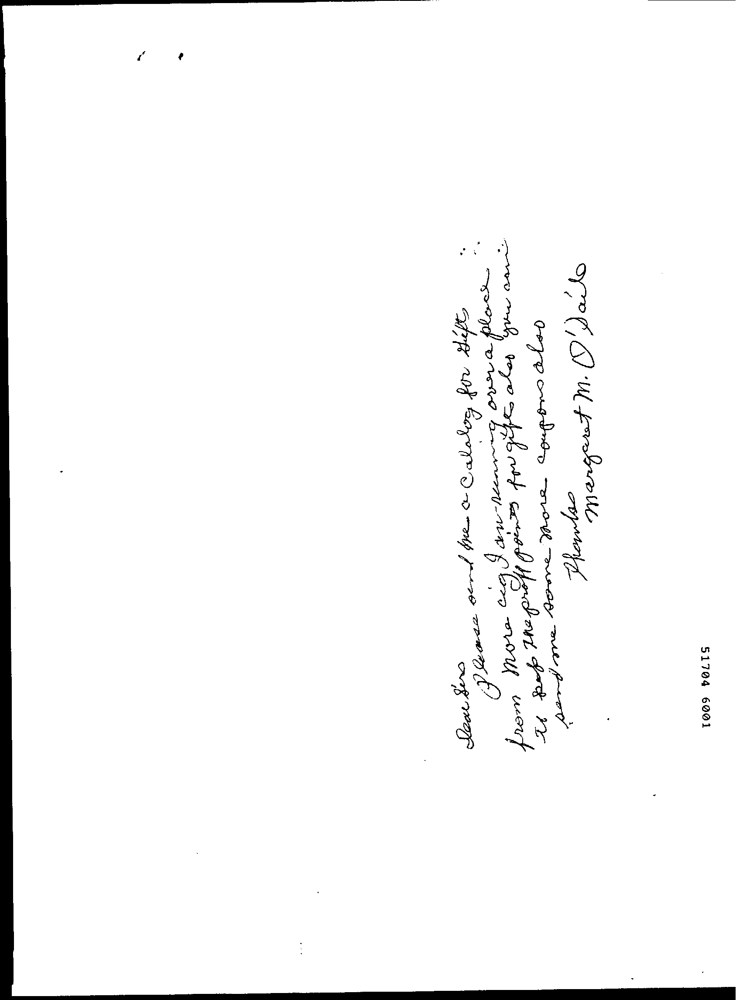 Dear Sirs
Please send me a Catalog for Gifts
from More cig I am running over a place
to keep the proff points for gifts also you can
send me some more coupons also
Thanks
Margaret M. O'
51704 6001